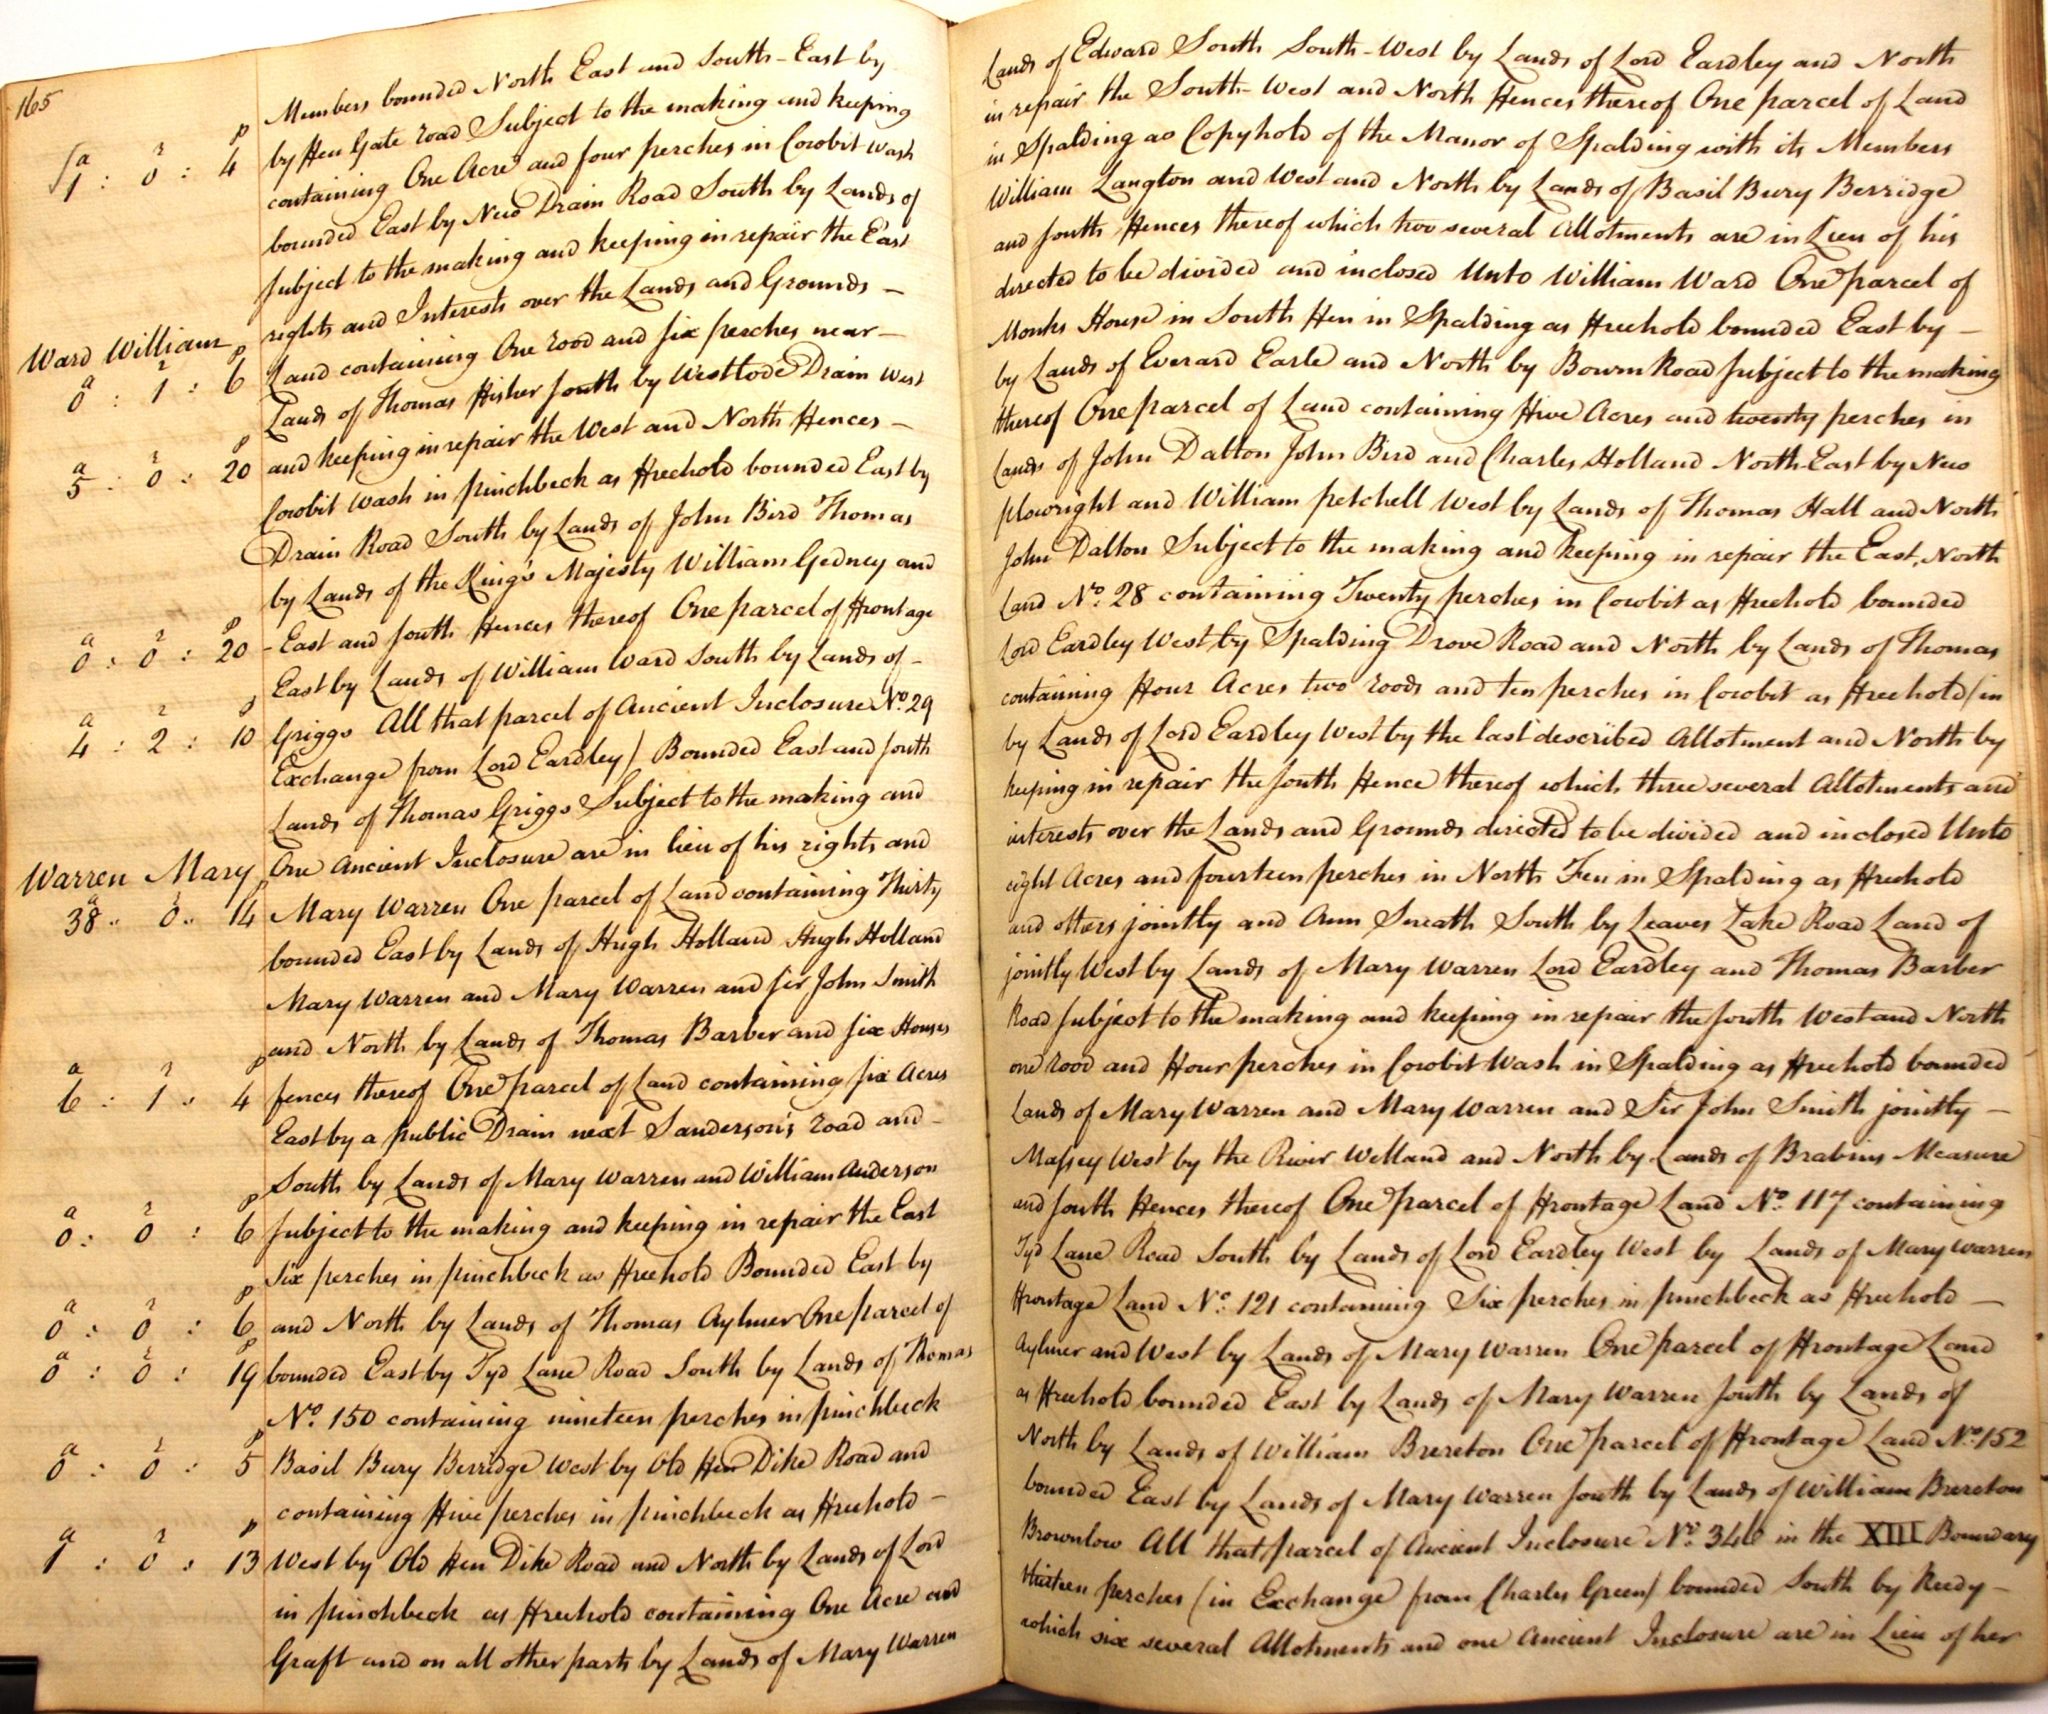 165
Members bounded North East and South-East by Lands of Edward South South-West by Lands of Lord Eardley and North
by Fen Gate road Subject to the making and keeping in repair the South-West and North Fences thereof One parcel of Land
a r p
1 : 0 : 4
containing One Acre and four perches in Cowbit Wash in Spalding as Copyhold of the Manor of Spalding with its Members
bounded East by New Drain Road South by Lands of William Langton and West and North by Lands of Basil Bury Berridge
Subject to the making and keeping in repair the East and South Fences thereof which two several Allotments are in Lieu of his
rights and Interests over the Lands and Grounds – directed to be divided and inclosed Unto William Ward One parcel of
Ward William
a r p
0 : 1 : 6
Land containing One rood and six perches near – Monks House in South Fen in Spalding as Freehold bounded East by –
Lands of Thomas Fisher South by Westlode Drain West by Lands of Everard Earle and North by Bourn Road Subject to the making
and keeping in repair the West and North Fences – thereof One parcel of Land containing Five Acres and twenty perches in
a r p
5 : 0 : 20
Cowbit Wash in pinchbeck as Freehold bounded East by Lands of John Dalton John Bird and Charles Holland North-East by New
Drain Road South by Lands of John Bird Thomas plowright and William petchell West by Lands of Thomas Hall and North
by Lands of the King's Majesty William Gedney and John Dalton Subject to the making and keeping in repair the East, North
a r p
0 : 0 : 20
-East and South Fences thereof One parcel of Frontage Land No. 28 containing Twenty perches in Cowbit as Freehold bounded
East by Lands of William Ward South by Lands of – Lord Eardley West by Spalding Drove Road and North by Lands of Thomas
a r p
4 : 2 : 10
Griggs All that parcel of Ancient Inclosure No. 29 containing Four Acres two roods and ten perches in Cowbit as Freehold (in
Exchange from Lord Eardley) Bounded East and South by Lands of Lord Eardley West by the last described Allotment and North by
Lands of Thomas Griggs Subject to the making and keeping in repair the South Fence thereof which three several Allotments and
One Ancient Inclosure are in lieu of his rights and interests over the Lands and Grounds directed to be divided and inclosed Unto
Warren Mary
a r p
38 .. 0 .. 14
Mary Warren One parcel of Land containing Thirty eight Acres and fourteen perches in North Fen in Spalding as Freehold
bounded East by Lands of Hugh Holland Hugh Holland and others jointly and Ann Sneath South by Leaves Lake Road Land of
Mary Warren and Mary Warren and Sir John Smith jointly West by Lands of Mary Warren Lord Eardley and Thomas Barber
and North by Lands of Thomas Barber and Six Houses Road Subject to the making and keeping in repair the South West and North
a r p
6 : 1 : 4
fences thereof One parcel of Land containing Six Acres one rood and Four perches in Cowbit Wash in Spalding as Freehold bounded
East by a public Drain next Sanderson's road and – Lands of Mary Warren and Mary Warren and Sir John Smith jointly –
South by Lands of Mary Warren and William Anderson Massey West by the River Welland and North by Lands of Brabins Measure
Subject to the making and keeping in repair the East and South Fences thereof One parcel of Frontage Land No. 117 containing
a r p
0 : 0 : 6
Six perches in pinchbeck as Freehold Bounded East by Tyd Lane Road South by Lands of Lord Eardley West by Lands of Mary Warren
and North by Lands of Thomas Aylmer One parcel of Frontage Land No. 121 containing Six perches in pinchbeck as Freehold –
a r p
0 : 0 : 6
bounded East by Tyd Lane Road South by Lands of Thomas Aylmer and West by Lands of Mary Warren One parcel of Frontage Land
a r p
0 : 0 : 19
No. 150 containing nineteen perches in pinchbeck as Freehold bounded East by Lands of Mary Warren South by Lands of
Basil Bury Berridge West by Old Fen Dike Road and North by Lands of William Brereton One parcel of Frontage Land No. 152
a r p
0 : 0 : 5
containing Five perches in pinchbeck as Freehold – bounded East by Lands of Mary Warren South by Lands of William Brereton
West by Old Fen Dike Road and North by Lands of Lord Brownlow All that parcel of Ancient Inclosure No. 346 in the XIII Boundary
a r p
1 : 0 : 13
in pinchbeck as Freehold containing One Acre and thirteen perches (in Exchange from Charles Green) bounded South by Reedy –
Graft and on all other parts by Lands of Mary Warren which six several Allotments and one Ancient Inclosure are in Lieu of her